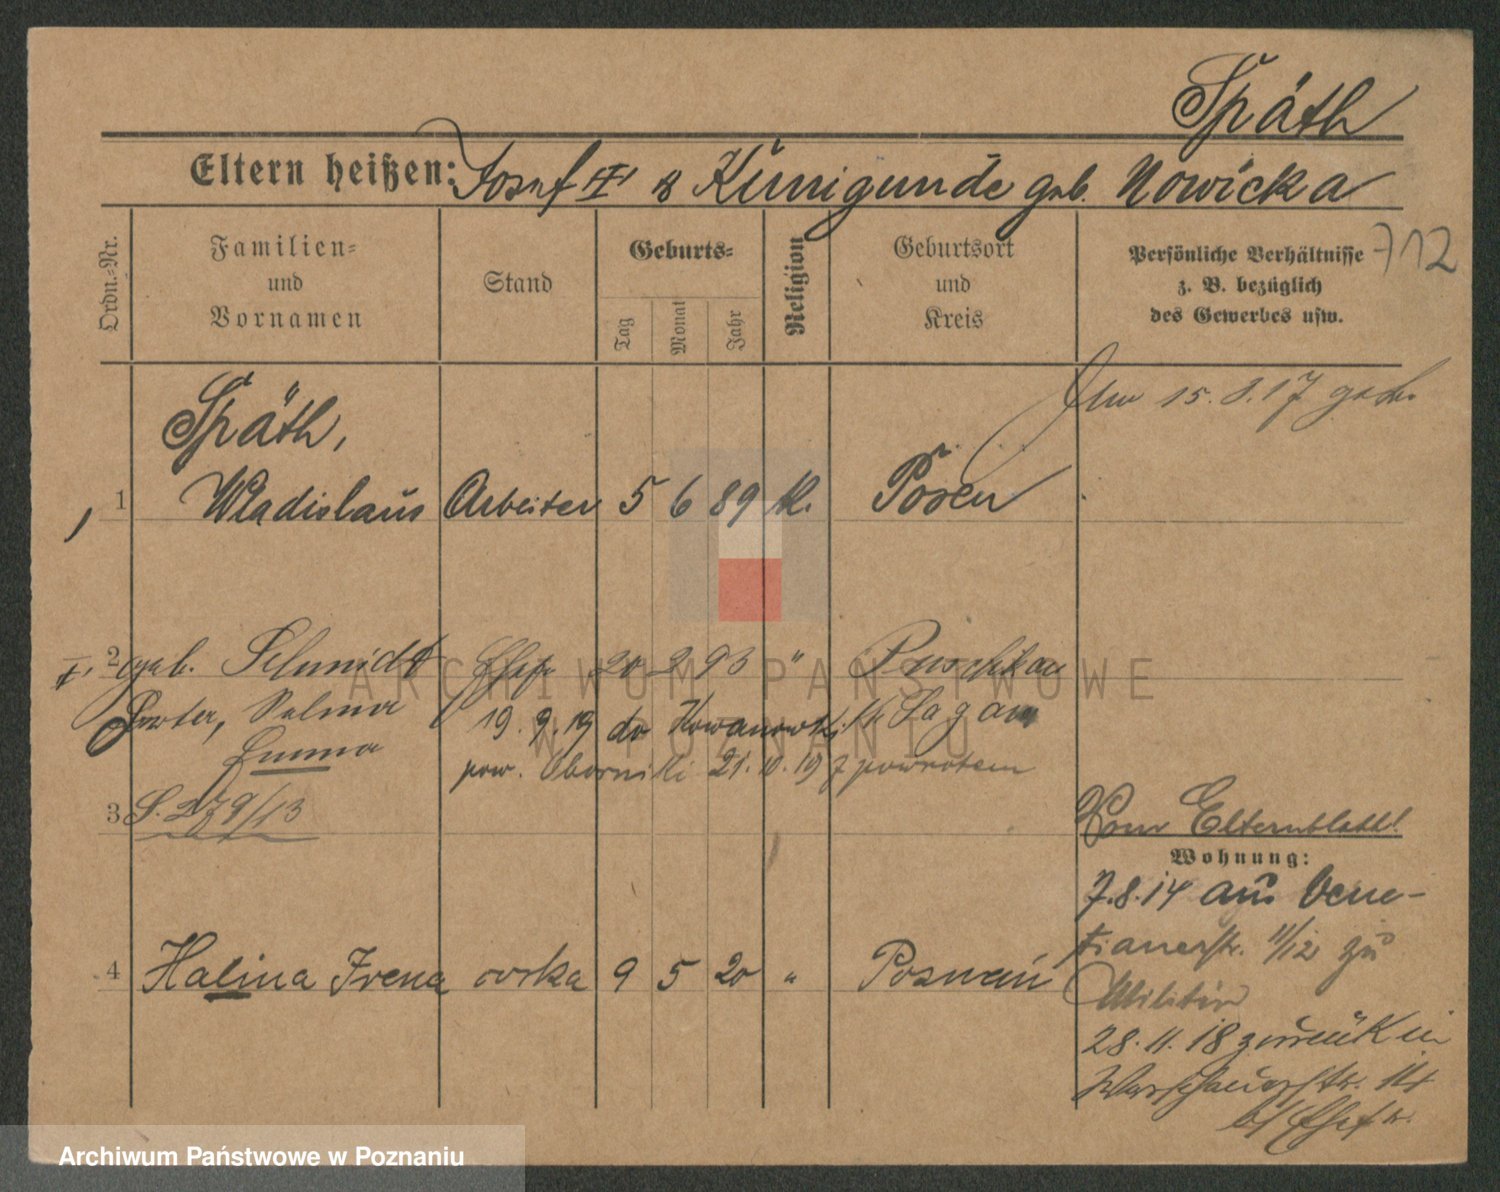 Späth
Eltern heißen: Josef II & Kunigunde geb. Nowicka
712
Ordn.-Nr.
Familien-
und
Vornamen
Stand
Geburts-
Tag
Monat
Jahr
Religion
Geburtsort
und
Kreis
Persönliche Verhältnisse
z. B. bezüglich
des Gewerbes usw.
15.8.17
Späth,
1 Wladislaus Arbeiter 5 6 89 k. Posen
2 geb. Schmidt Ehefr. 20 2 93 " Puschkau
Selma
Emma
Kr. Sagan
19.9.19 do Kowanowki
pow. Oborniki 21.10.19 z powrotem
3 S. 279/13
Vom Elternblatt!
Wohnung:
7.8.14 aus Vene-
tianerstr. 11/12 zu
Militär
28.11.18 zurück in
Warschauerstr.
b/ Ehefr.
4 Halina Irena corka 9 5 20 " Poznań
ARCHIWUM PAŃSTWOWE
W POZNANIU
Archiwum Państwowe w Poznaniu